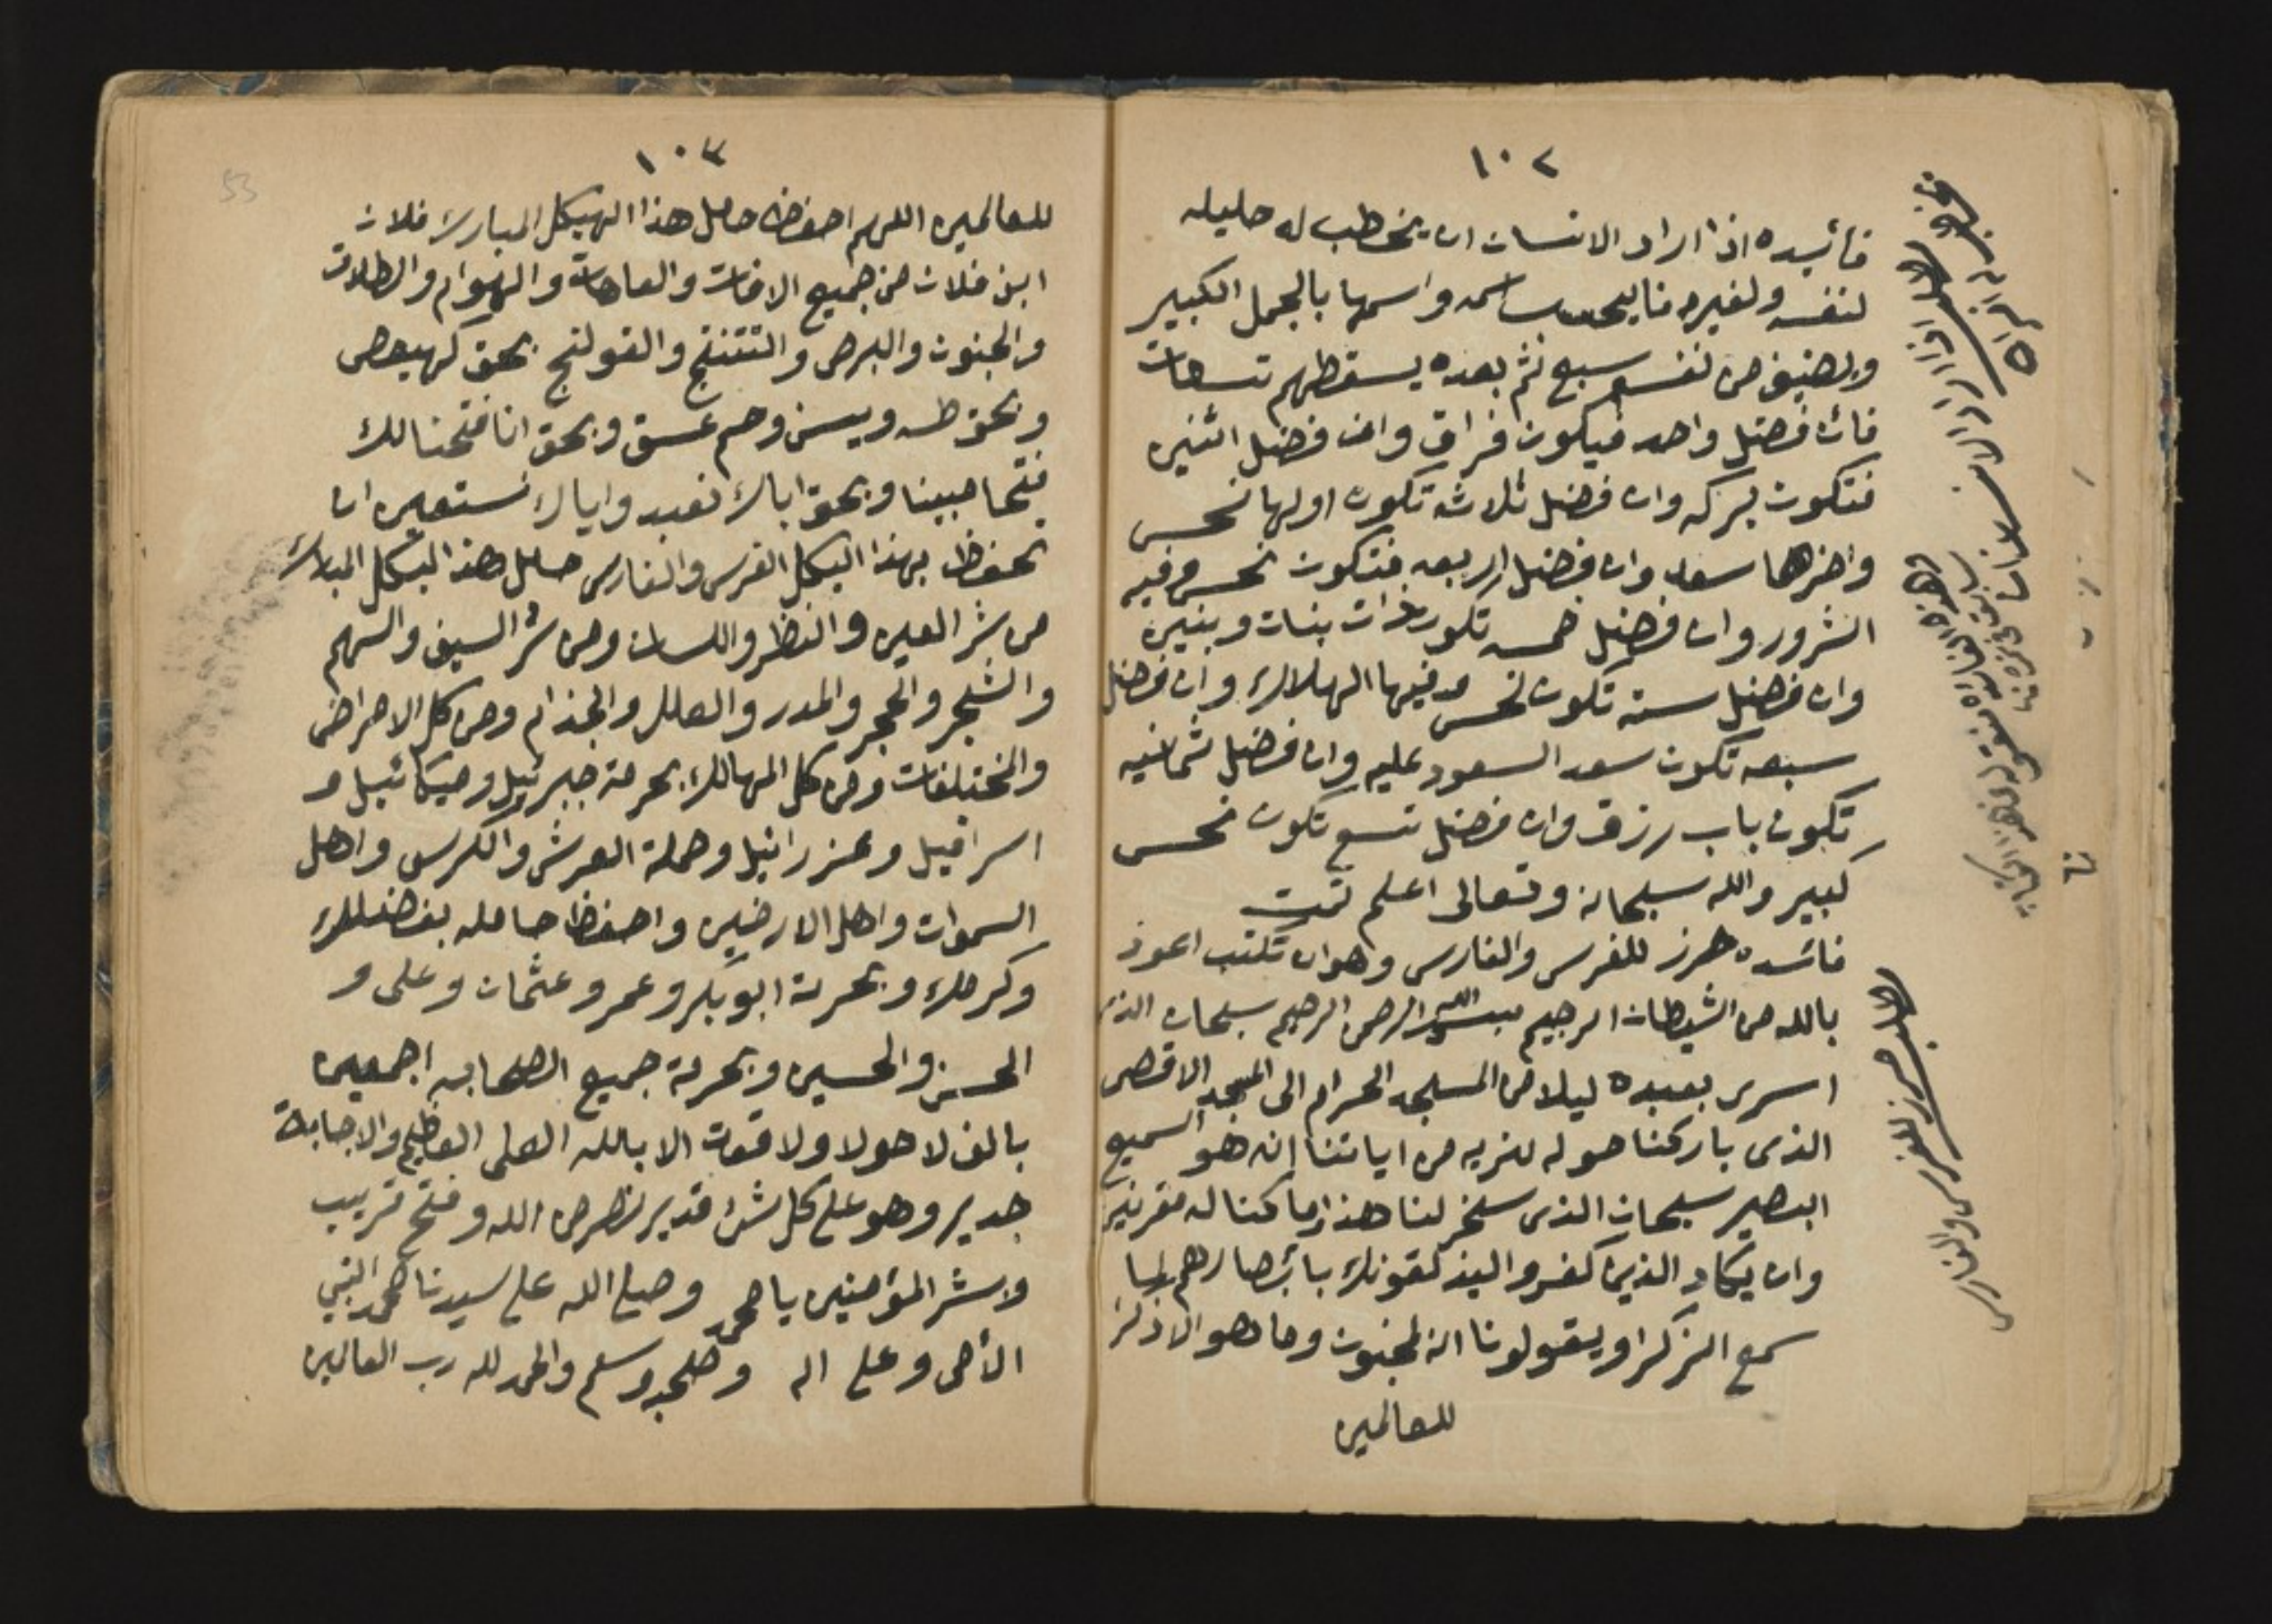 ١٠٢
فائيده اذا اراد الانسان ان يخطب له حليله
لنفسه ولغيره فاليحسب اسمه واسمها بالجمل الكبير
ويضيف من نفسه سبع ثم بعده يسقطهم تسعات
فان فضل واحد فيكون فراق وان فضل اثنين
فتكون بركه وان فضل ثلاثه تكون اولها نحس
واخرها سعد وان فضل اربعه فتكون نحس وفيه
الشرور وان فضل خمسه تكون ذات بنات وبنين
وان فضل سته تكون نحس وفيها الهلاك وان فضل
سبعه تكون سعد السعود عليه وان فضل ثمانيه
تكون باب رزق وان فضل تسع تكون نحس
كبير والله سبحانه وتعالى اعلم تمت
فائده حرز للفرس والفارس وهو ان تكتب اعوذ
بالله من الشيطان الرجيم بسم الله الرحمن الرحيم سبحان الذى
اسرى بعبده ليلا من المسجد الحرام الى المسجد الاقصى
الذى باركنا حوله لنريه من اياتنا انه هو السميع
البصير سبحان الذى سخر لنا هذا وما كنا له مقرنين
وان يكاد الذين كفروا ليذلقونك بابصارهم لما
سمع الذكرا ويقولونا انه لمجنون وما هو الا ذكر
للعالمين
اذا اراد الانسان
حرز للفرس والفارس
١٠٣
53
للعالمين اللهم احفظ حامل هذا الهيكل المبارك فلان
ابن فلان من جميع الافات والعاهات والهوام والطلات
والجنون والبرص والتتنتج والقولنج بحق كهيعص
وبحق طه ويس وحم عسق وبحق انا فتحنا لك
فتحا مبينا وبحق اياك نعبد واياك نستعين ان
تحفظ بهذا اليكل الفرس والفارس حامل هذا اليكل المبارك
من شر العين والنظر واللسان ومن شر السيف والسهم
والشجر والحجر والمدر والعلل والجذام ومن كل الامراض
والمختلفات ومن كل المهالك بحرمة جبرئيل وميكائيل و
اسرافيل وعزرائيل وحملة العرش والكرسى واهل
السموات واهل الارضين واحفظ حامله بفضلك
وكرمك وبحرمة ابوبكر وعمر وعثمان وعلى و
الحسن والحسين وبحرمة جميع الصحابه اجمعين
بالف لا حولا ولا قوت الا بالله العلى العظيم والاجابة
جدير وهو على كل شئ قدير نصر من الله وفتح قريب
وبشر المؤمنين يا محمد وصلى الله على سيدنا محمد النبي
الأمى وعلى اله وصحبه وسلم والحمد لله رب العالمين